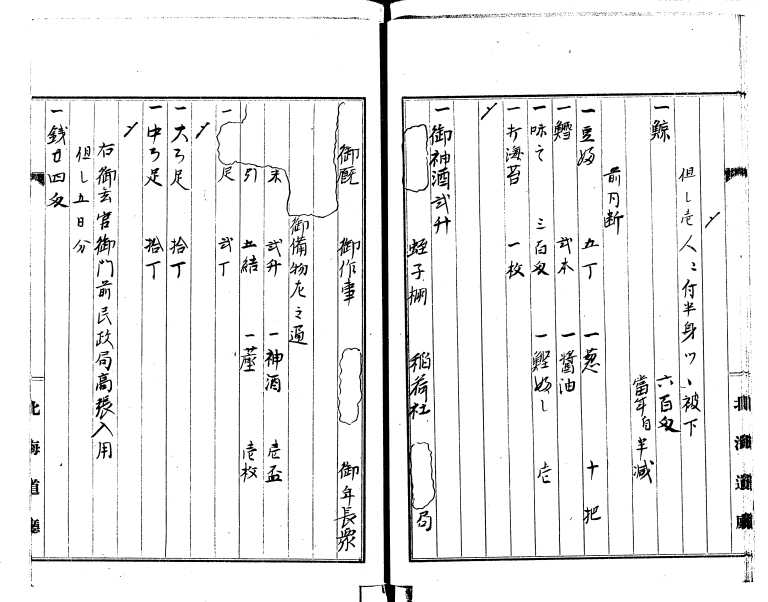 但し壱人ニ付半身ツヽ被下
一鯨 六百文
當年自半減
前月断
一豆腐 五丁 一葱 十把
一鱈 弐本 一醤油
一味そ 三百文 一鰹ぶし 壱
一打海苔 一枚
一御神酒弐升
蛭子棚 稲荷社 局
北海道廳
御厩 御作事 御年長衆
御備物左之通
米 弐升 一神酒 壱盃
引 五結 一薹 壱枚
一 足 弐丁
一大ろ足 拾丁
一中ろ足 拾丁
右御玄官御門前民政局高張入用
但し五日分
一銭廿四文
北海道廳